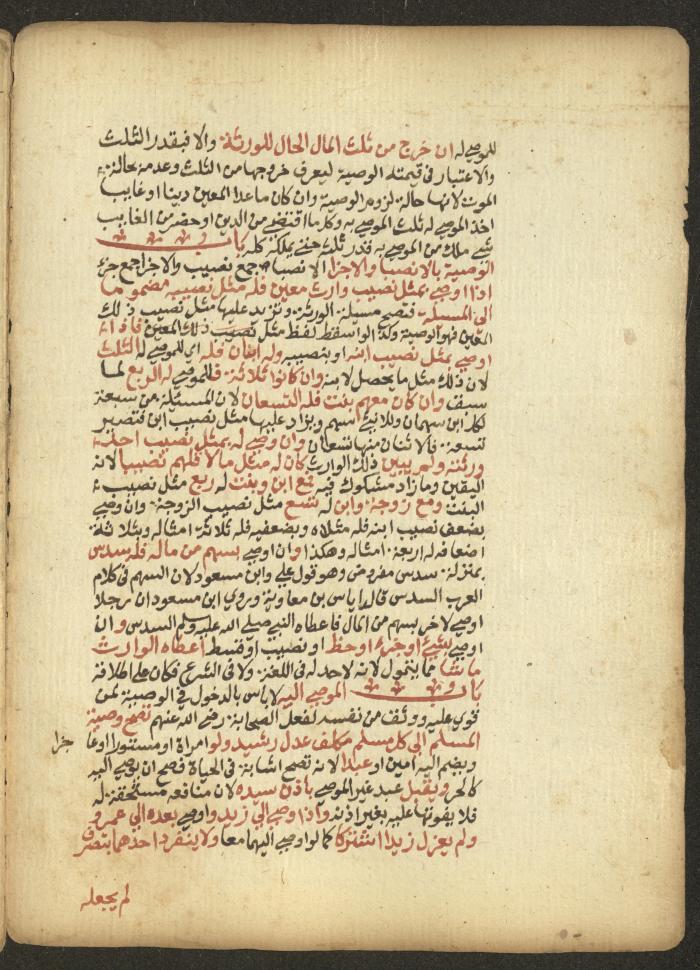 للموصى له ان خرج من ثلث المال الحال للورثة والا فبقدر الثلث
والاعتبار في قيمته الوصية ليعرف خروجها من الثلث وعدمه بحالة
الموت لانها حالة لزوم الوصية وان كان ما عدا المعين دينا او غايبا
اخذ الموصى له ثلث الموصى به وكلما اقتضي من الدين او حضر من الغايب
شي ملك من الموصى به قدر ثلثه حتى يملكه كله باب
الوصية بالانصبا والاجزا الانصبا جمع نصيب والاجزا جمع جزء
اذا اوصى بمثل نصيب وارث معين فله مثل نصيبه مضموما
الى المسيلة فتصح مسيلة الورثة وتزيد عليها مثل نصيب ذلك
المعين فهو الوصية وكذا لو اسقط لفظ مثل نصيب ذلك المعين فاذا
اوصى بمثل نصيب ابنه او بنصيبه وله ابنان فله اي للموصى له الثلث
لان ذلك مثل ما يحصل لابنه وان كانوا ثلاثة فللموصى له الربع لما
سبق وان كان معهم بنت فله التسعان لان المسئلة من سبعة
لكل ابن سهمان وللانثى سهم ويزاد عليها مثل نصيب ابن فتصير
تسعة فالاثنان منها تسعان وان وصى له بمثل نصيب احد
ورثته ولم يبين ذلك الوارث كان له مثل ما لاقلهم نصيبا لانه
اليقين وما زاد مشكوك فيه فمع ابن وبنت له ربع مثل نصيب
البنت ومع زوجة وابن له تسع مثل نصيب الزوجة وان وصى
بضعف نصيب ابنه فله مثلاه وبضعفيه فله ثلاثة امثاله وبثلاثة
اضعافه له اربعة امثاله وهكذا وان اوصى بسهم من ماله فله سدس
بمنزلة سدس مفروض وهو قول علي وابن مسعود لان السهم في كلام
العرب السدس قاله اياس بن معاوية وروى ابن مسعود ان رجلا
اوصى لاخر بسهم من المال فاعطاه النبي صلى الله عليه وسلم السدس وان
اوصى بشيء او جزء او حظ او نصيب او قسط اعطاه الوارث
ما شا مما يتمول لانه لا حد له في اللغة ولا في الشرع فكان على اطلاقه
باب الموصى اليه لا باس بالدخول في الوصية لمن
قوي عليه ووثق من نفسه لفعل الصحابة رضي الله عنهم تصح وصية
المسلم الى كل مسلم مكلف عدل رشيد ولو امراة او مستورا او عا جزا
ويضم اليه امين او عبدا لانه تصح استنابته في الحياة فصح ان يوصى اليه
كالحر ويقبل عبد غير الموصي باذن سيده لان منافعه مستحقة له
فلا يفوتها عليه بغير اذنه واذا اوصى الى زيد واوصى بعده الى عمرو
ولم يعزل زيدا اشتركا كما لو اوصى اليهما معا ولا ينفرد احدهما بتصرف
لم يجعله